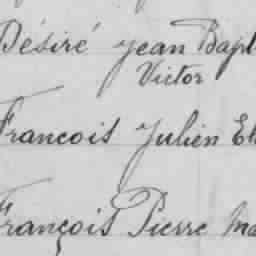 Désiré Jean Bapt
Victor
Francois Julien El
François Pierre Ma